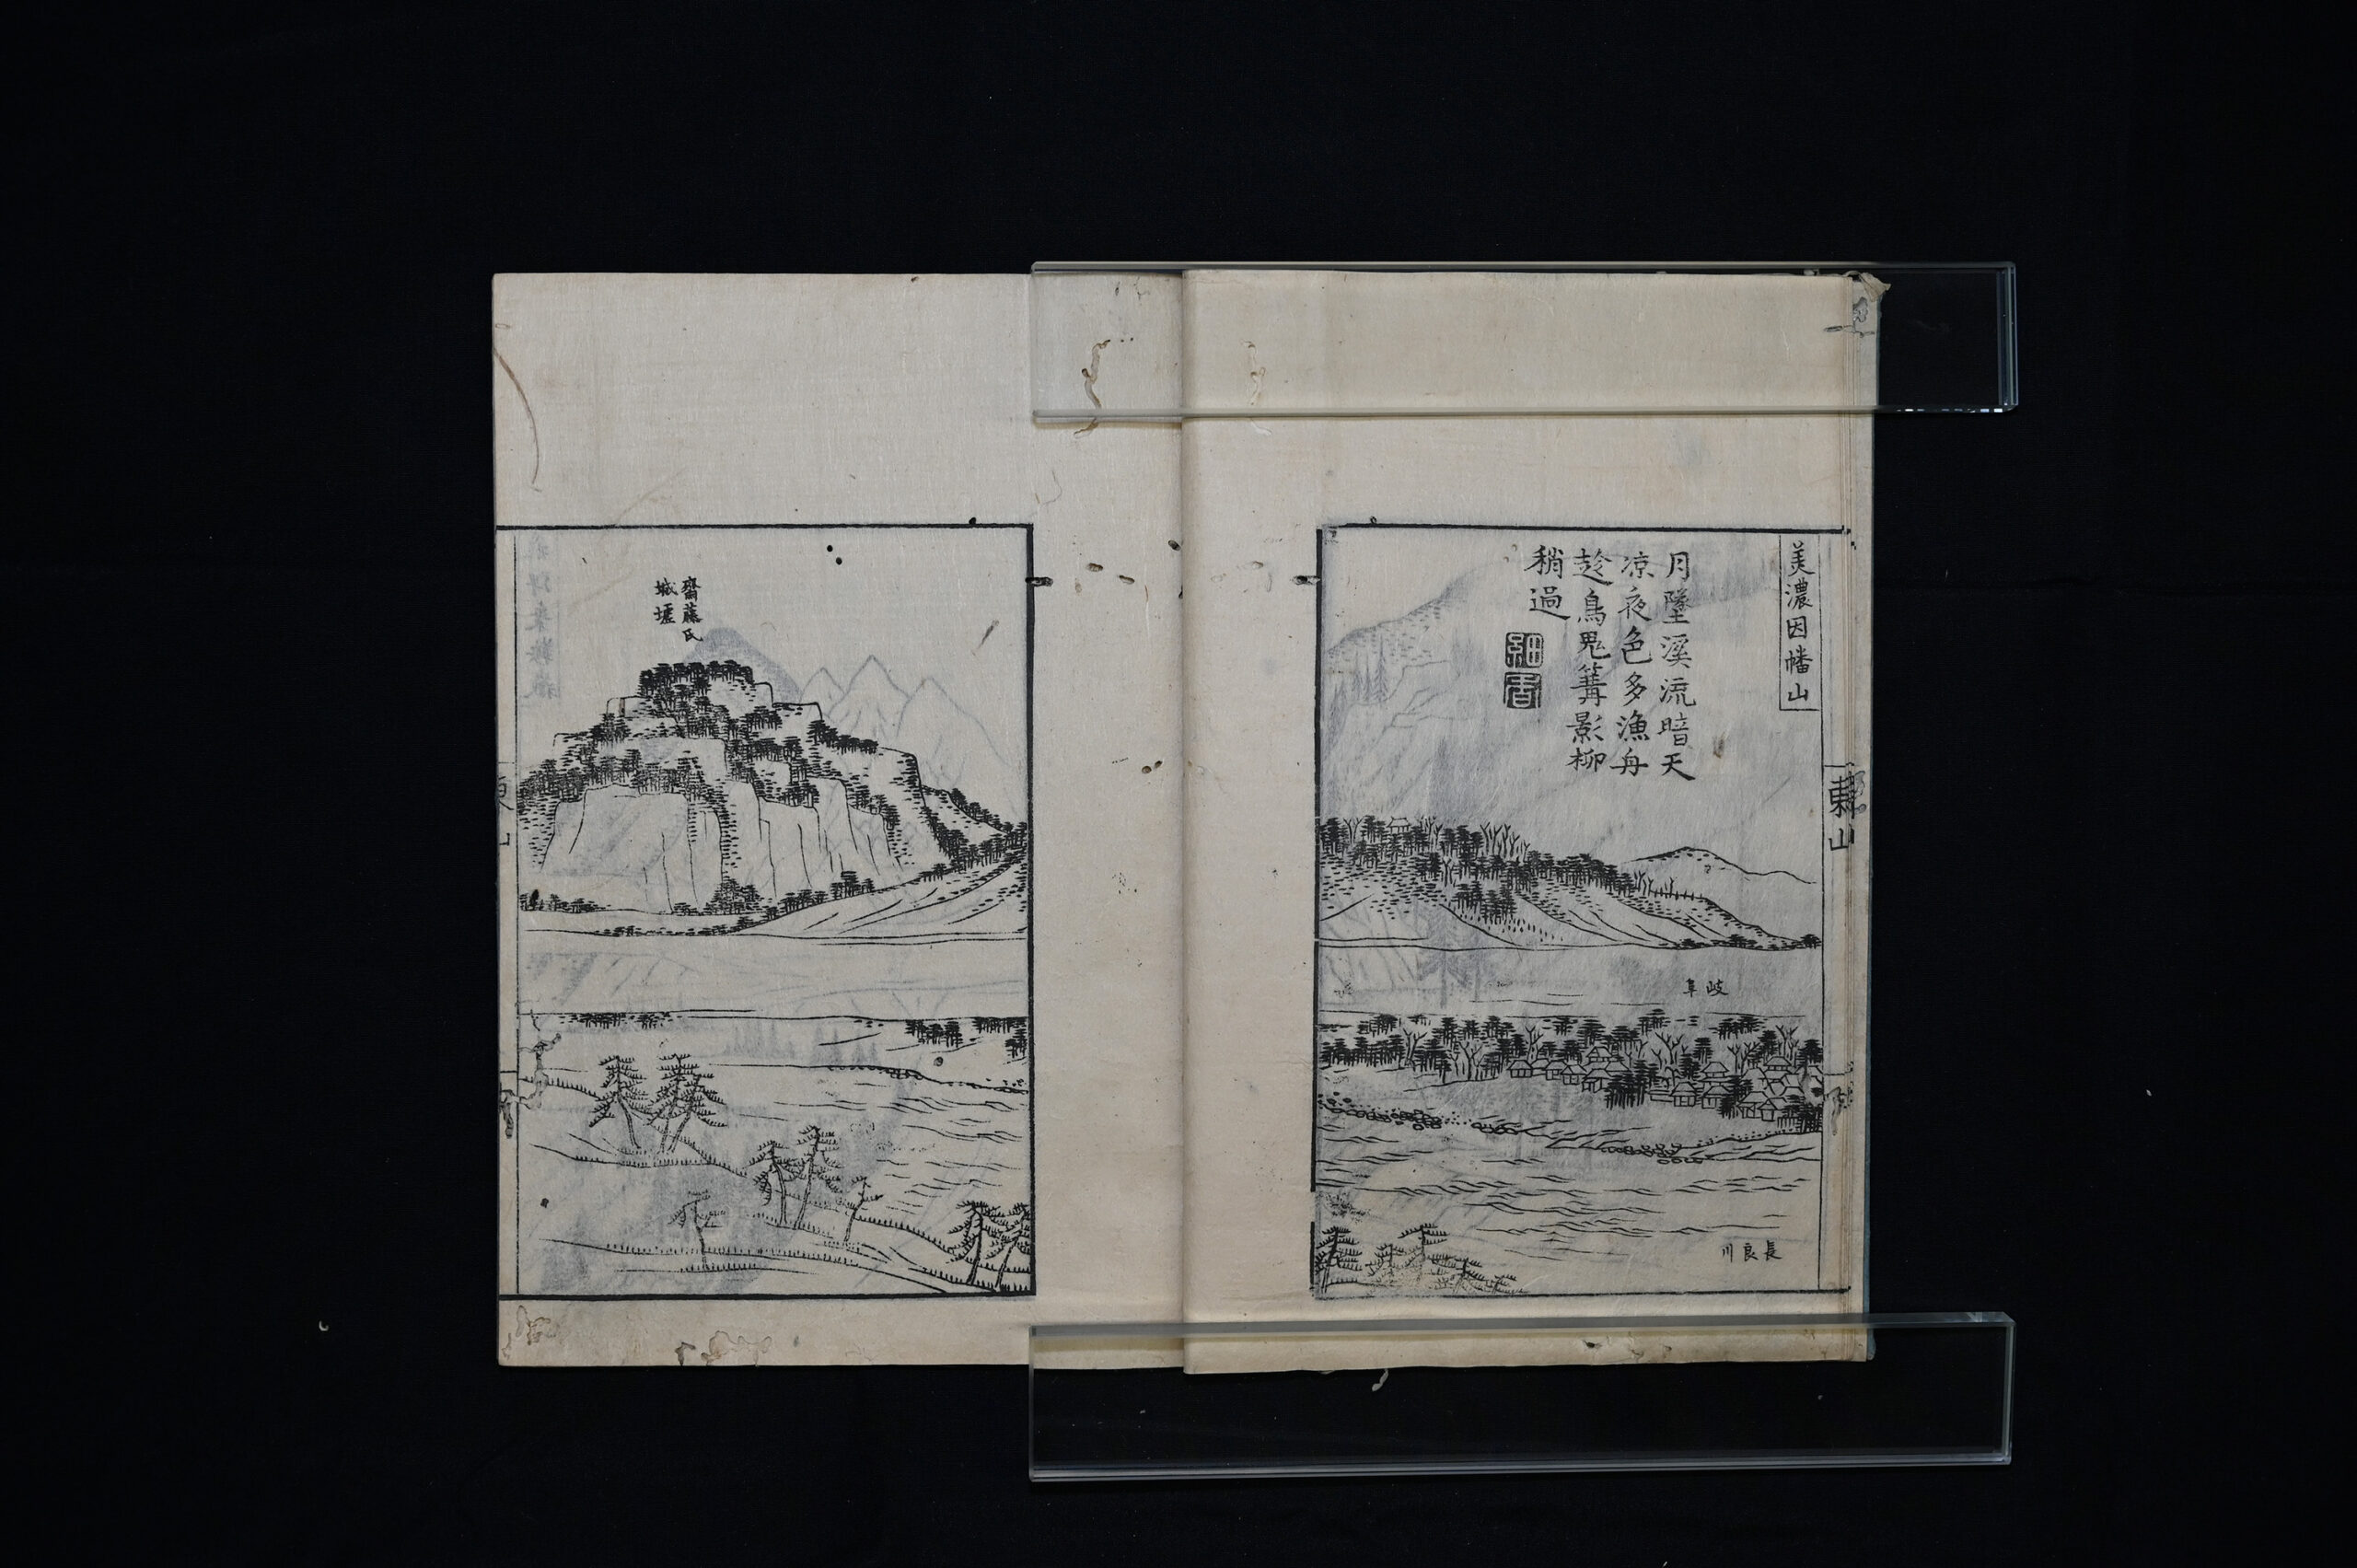 美濃因幡山
月墜溪流暗天
涼夜色多漁舟
趁鳥鬼篝影柳
稍過
岐阜
長良川
東山
齋藤氏
城墟